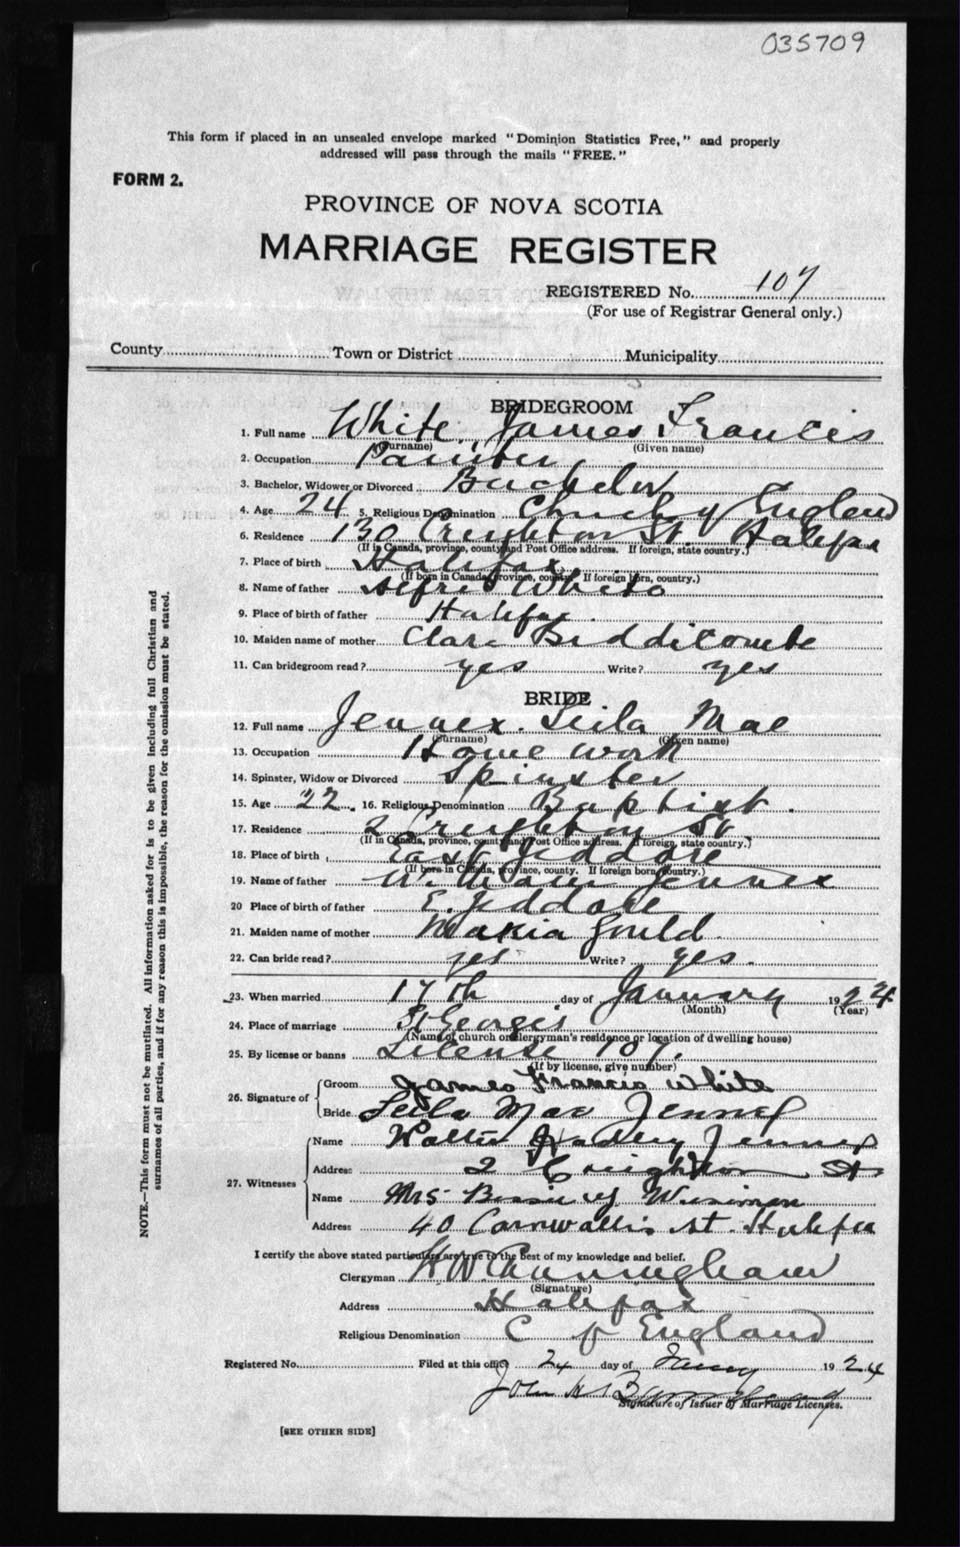 035709
This form if placed in an unsealed envelope marked "Dominion Statistics Free," and properly
addressed will pass through the mails "FREE."
FORM 2.
PROVINCE OF NOVA SCOTIA
MARRIAGE REGISTER
REGISTERED No. 107
(For use of Registrar General only.)
County Town or District Municipality
BRIDEGROOM
1. Full name White James Francis
(Surname) (Given name)
2. Occupation Painter
3. Bachelor, Widower or Divorced Bachelor
4. Age 24 5. Religious Denomination Church of England
6. Residence 130 Creighton St. Halifax
(If in Canada, province, county and Post Office address. If foreign, state country.)
7. Place of birth Halifax
(If born in Canada, province, county. If foreign born, country.)
8. Name of father Alfred White
9. Place of birth of father Halifax
10. Maiden name of mother Clara Biddicombe
11. Can bridegroom read? yes Write? yes
BRIDE
12. Full name Jennex. Leila Mae
(Surname) (Given name)
13. Occupation Home work
14. Spinster, Widow or Divorced Spinster
15. Age 22. 16. Religious Denomination Baptist.
17. Residence 2 Creighton St.
(If in Canada, province, county and Post Office address. If foreign, state country.)
18. Place of birth East Jeddore
(If born in Canada, province, county. If foreign born, country.)
19. Name of father William Jennex
20 Place of birth of father E. Jeddore
21. Maiden name of mother Maria Gould.
22. Can bride read? yes Write? yes.
23. When married 17th day of January 1924
(Month) (Year)
24. Place of marriage St Georges
(Name of church or clergyman's residence or location of dwelling house)
25. By license or banns License 107.
(If by license, give number)
26. Signature of
Groom James Francis White
Bride Leila Mae Jennex
27. Witnesses
Name Walter Jennex
Address 2 Creighton St
Name Mrs.
Address 40 Cornwallis St. Halifax
I certify the above stated particulars are true to the best of my knowledge and belief.
Clergyman H W Cunningham
(Signature)
Address Halifax
Religious Denomination C of England
Registered No. Filed at this office 24 day of Jany 1924
John
Signature of Issuer of Marriage Licenses.
[SEE OTHER SIDE]
NOTE.—This form must not be mutilated. All information asked for is to be given including full Christian and
surnames of all parties, and if for any reason this is impossible, the reason for the omission must be stated.